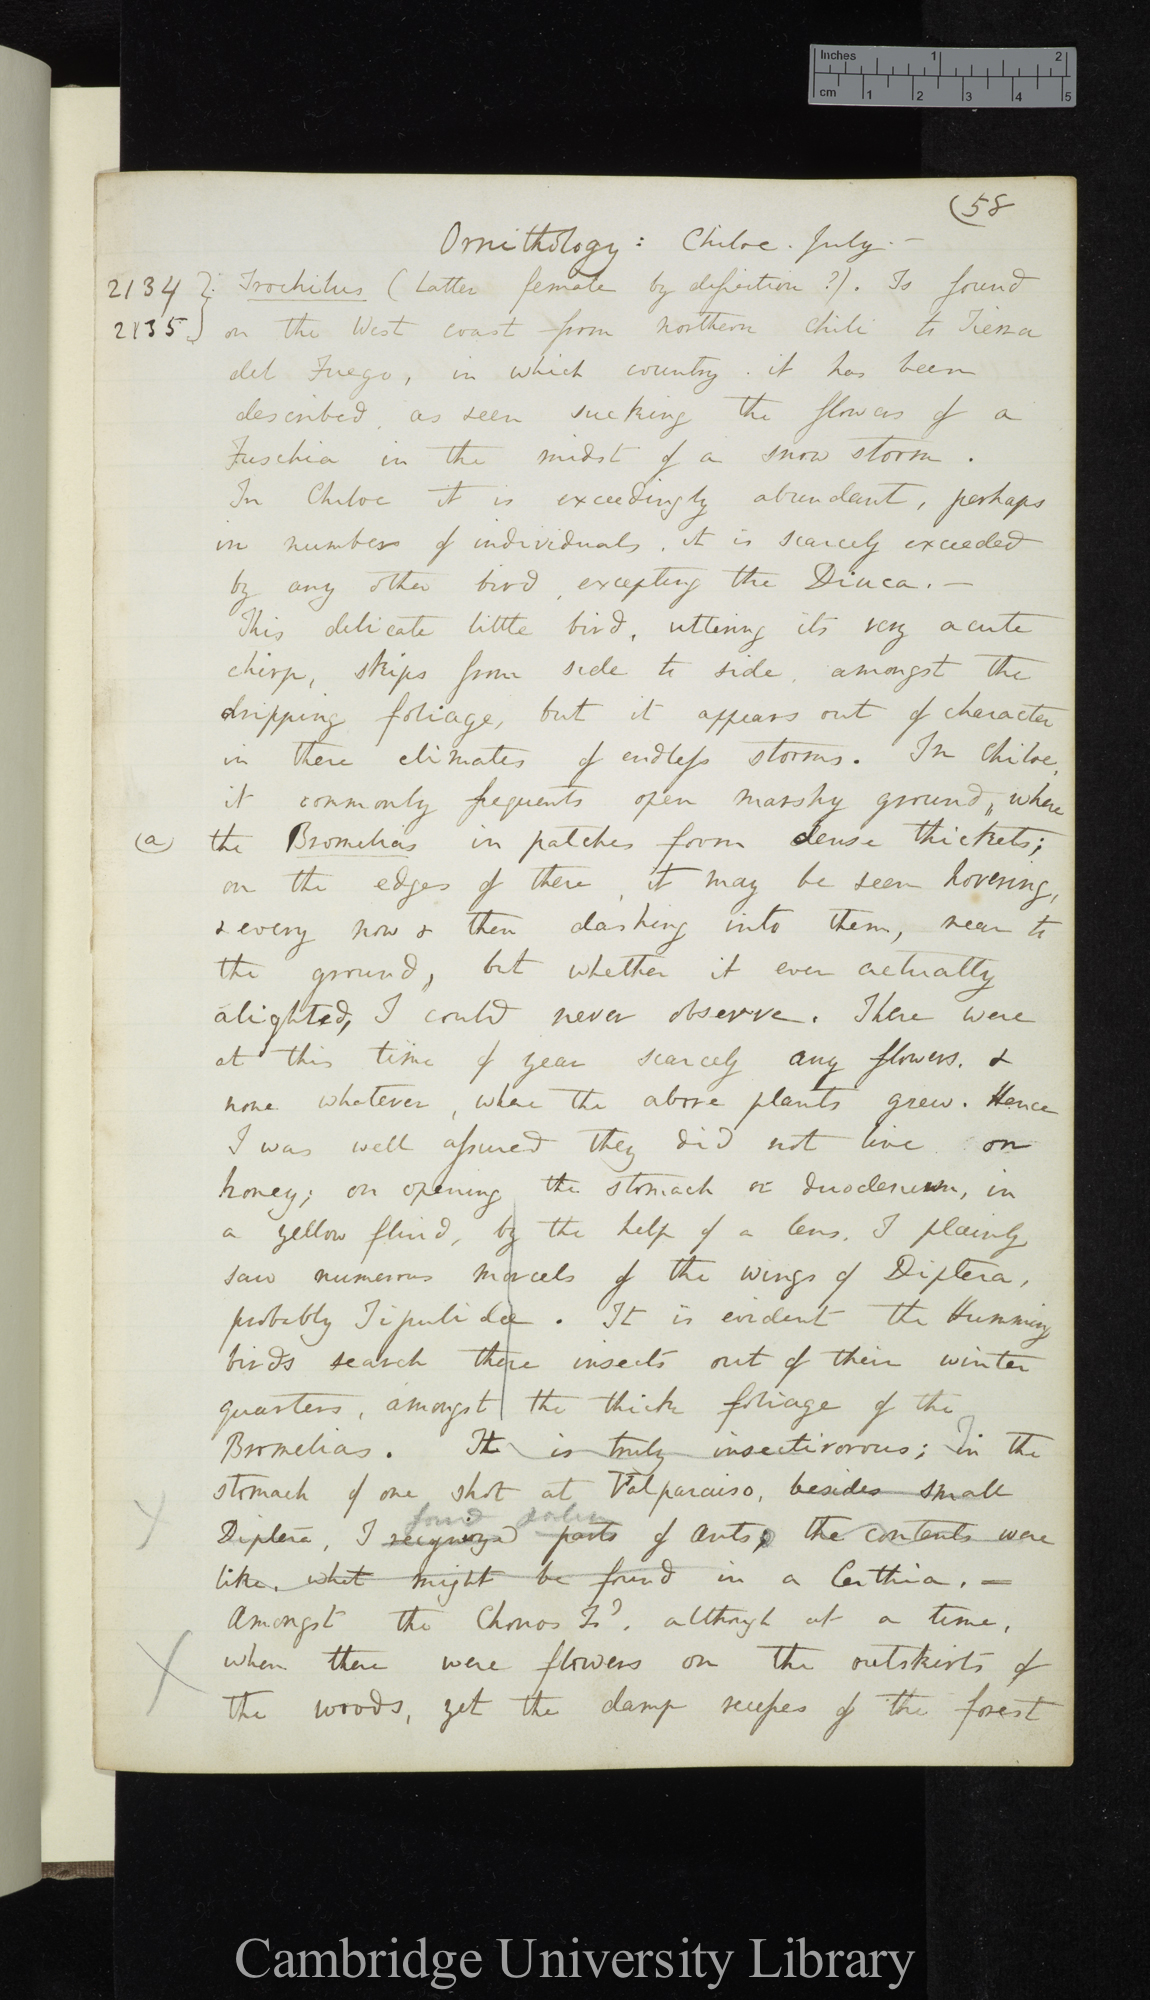 Inches 1 2
cm 1 2 3 4 5
(58
Ornithology: Chiloe. July. —
2134 } Trochilus (Latter female by dissection?). Is found
2135 } on the West coast from northern Chili to Tierra
del Fuego, in which country. it has been
described, as seen sucking the flowers of a
Fuschia in the midst of a snow storm.
In Chiloe it is exceedingly abundant, perhaps
in numbers of individuals, it is scarcely exceeded
by any other bird, excepting the Diuca. —
This delicate little bird, uttering its very acute
chirp, skips from side to side, amongst the
dripping foliage, but it appears out of character
in these climates of endless storms. In Chiloe,
it commonly frequents open marshy ground, where
(a) the Bromelias in patches form dense thickets;
on the edges of these, it may be seen hovering,
& every now & then dashing into them, near to
the ground, but whether it ever actually
alighted, I could never observe. There were
at this time of year scarcely any flowers. &
none whatever, where the above plants grew. Hence
I was well assured they did not live on
honey; on opening the stomach or duodenum, in
a yellow fluid, by the help of a lens, I plainly
saw numerous morcels of the wings of Diptera,
probably Tipulidæ. It is evident the Humming
birds search these insects out of their winter
quarters, amongst the thick foliage of the
Bromelias. It is truly insectivorous; In the
stomach of one shot at Valparaiso, besides small
found
Diptera, I recognized parts of ants; the contents were
like, what might be found in a Certhia. —
Amongst the Chonos Is?, although at a time,
when there were flowers on the outskirts of
the woods, yet the damp recesses of the forest
Cambridge University Library